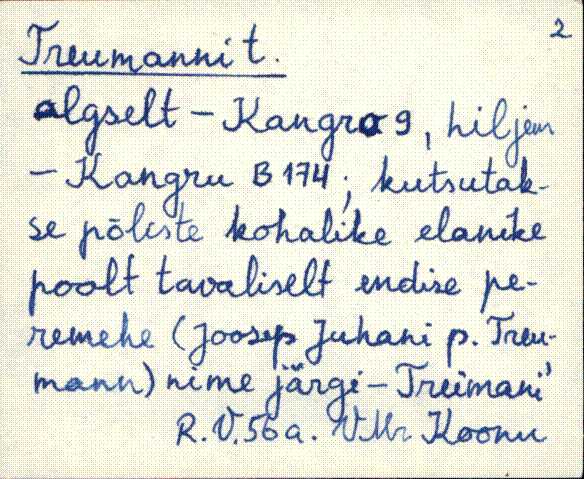 2
Treumanni t.
algselt - Kangro 9, hiljem
- Kangru B 174; kutsutak-
se põliste kohalike elanike
poolt tavaliselt endise pe-
remehe (Joosep Juhani p. Treu-
mann) nime järgi - Treimani'
R. V. 56 a. VMr Koonu